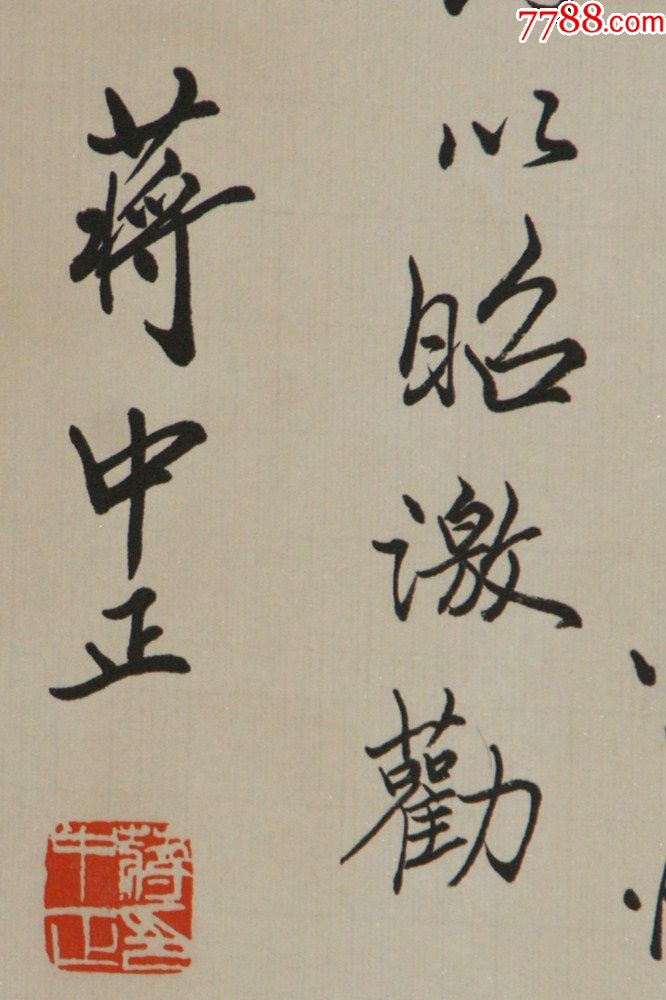 7788.com
以昭激勸
蔣中正
蔣印中正